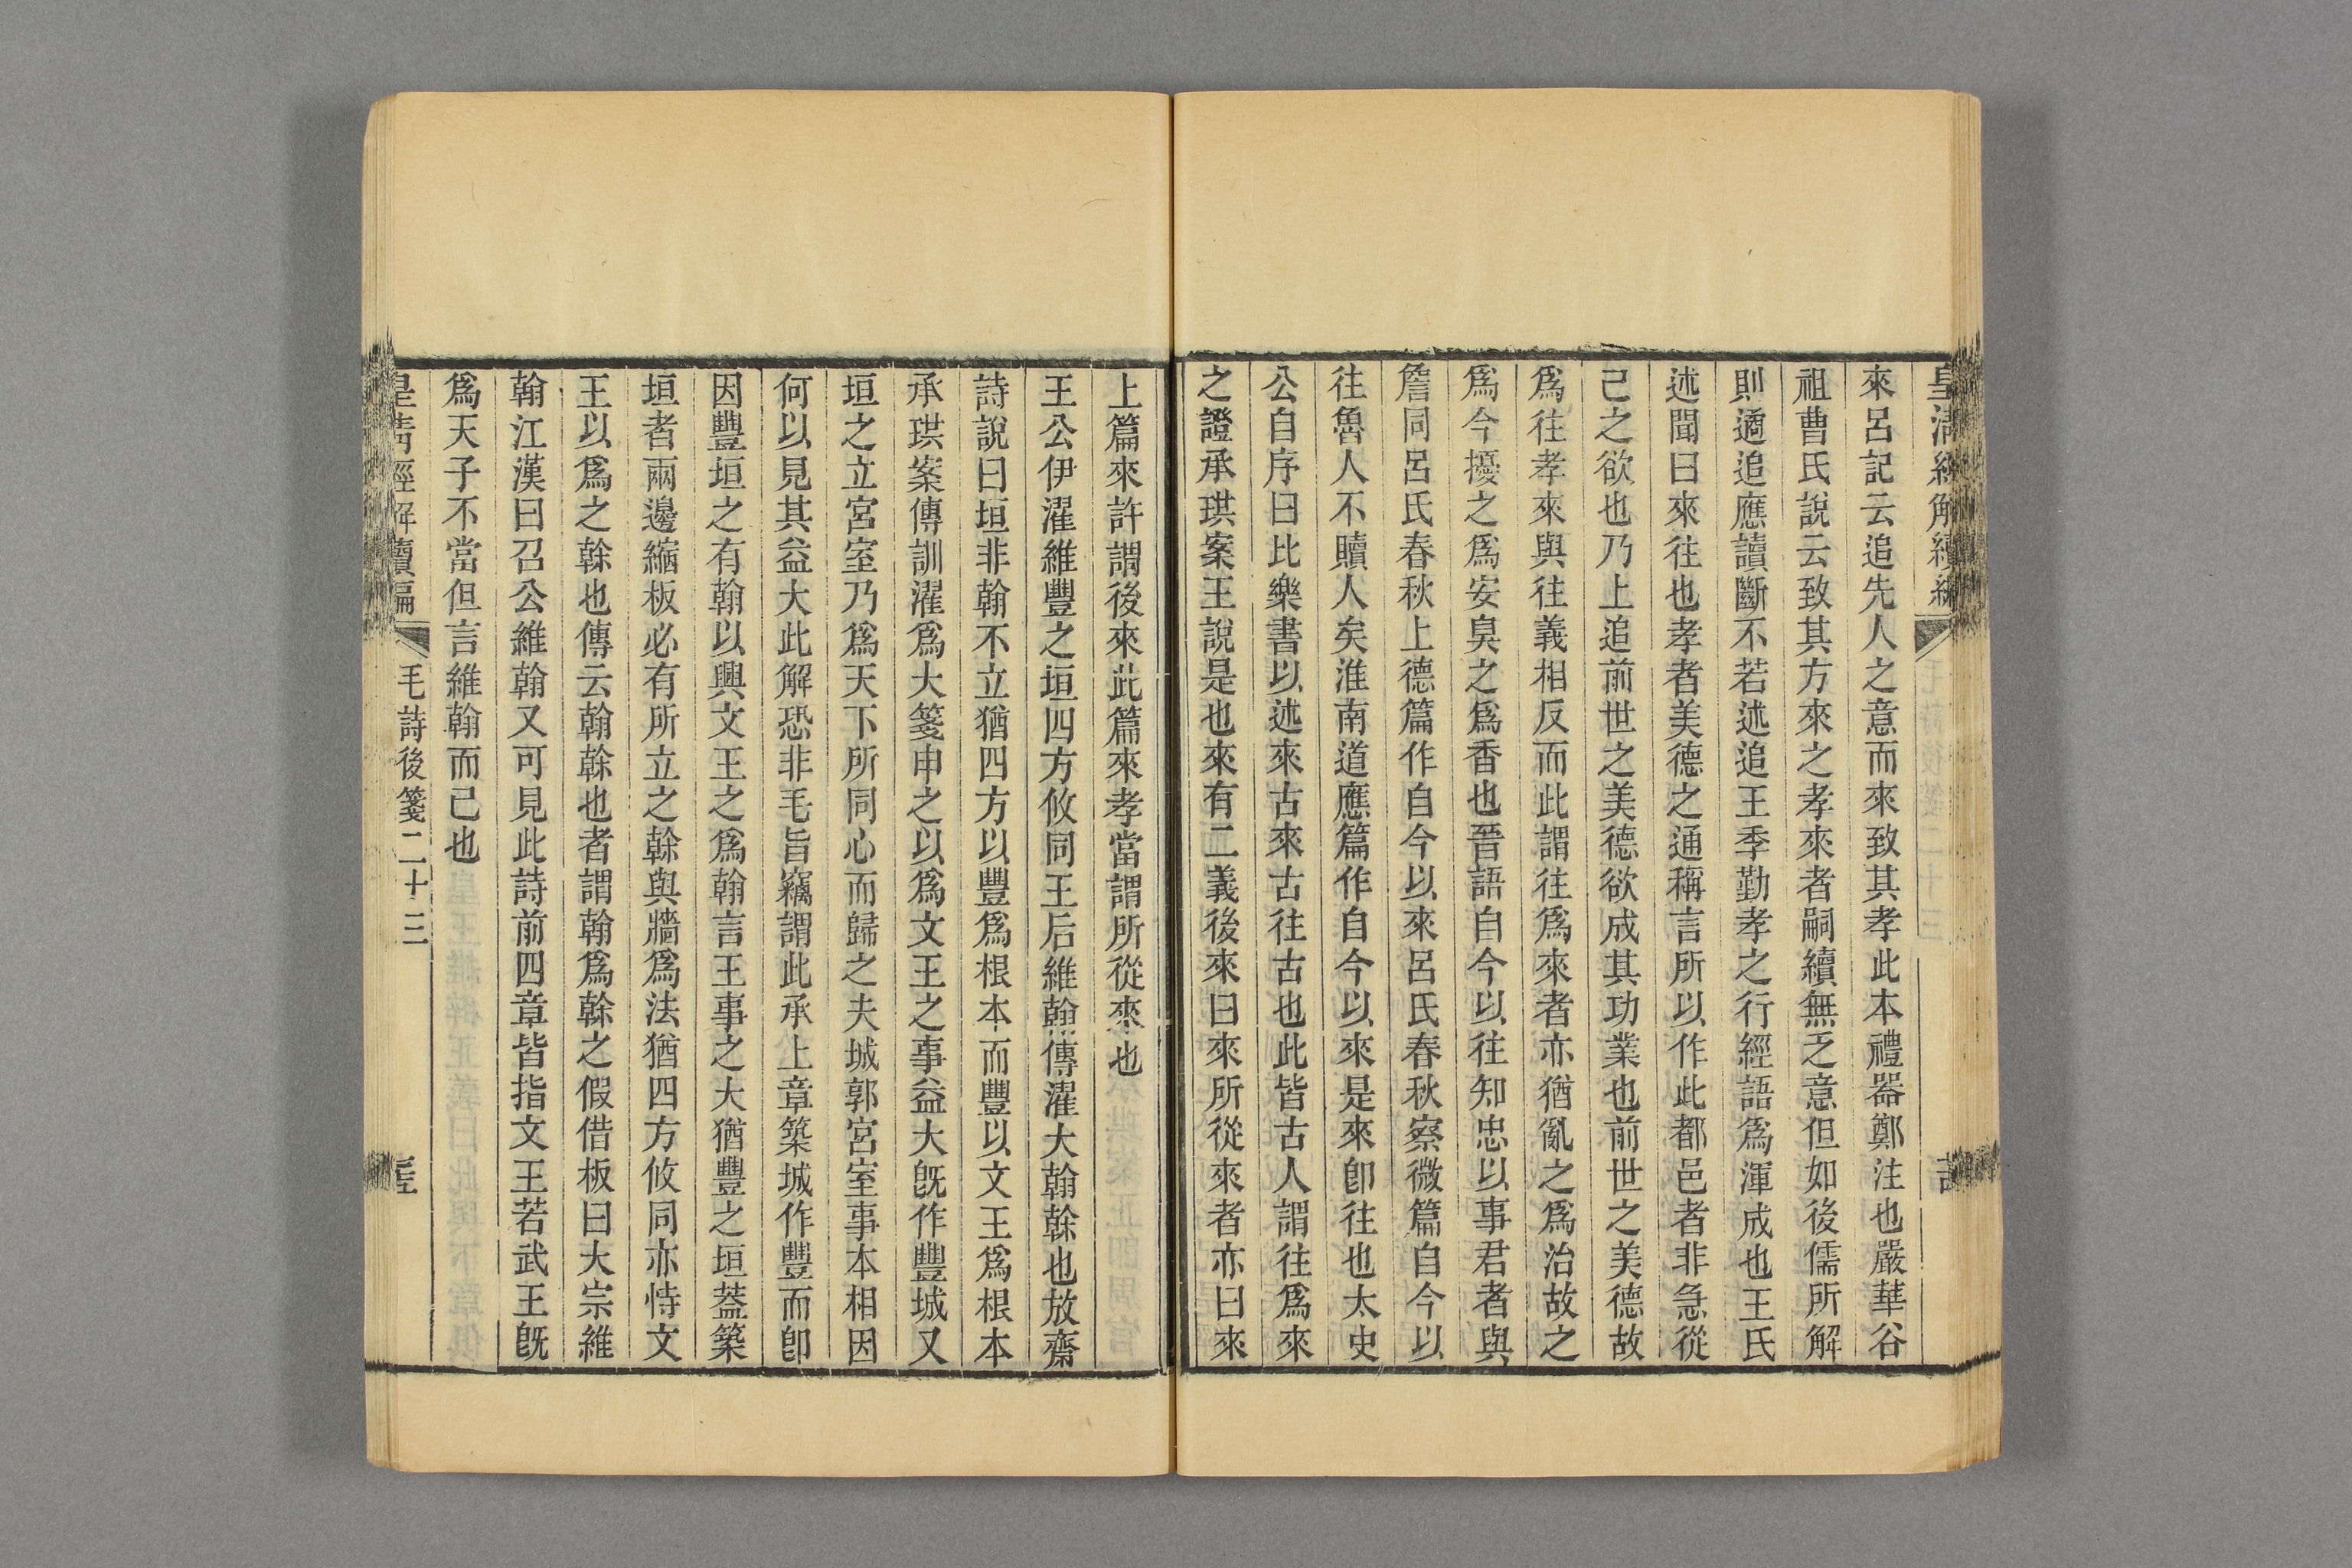 皇清經解續編
來呂記云追先人之意而來致其孝此本禮器鄭注也嚴華谷
祖曹氏說云致其方來之孝來者嗣續無乏意但如後儒所解
則遹追應讀斷不若述追王季勤孝之行經語爲渾成也王氏
述聞曰來往也孝者美德之通稱言所以作此都邑者非急從
己之欲也乃上追前世之美德欲成其功業也前世之美德故
爲往孝來與往義相反而此謂往爲來者亦猶亂之爲治故之
爲今擾之爲安臭之爲香也晉語自今以往知忠以事君者與
詹同呂氏春秋上德篇作自今以來呂氏春秋察微篇自今以
往魯人不贖人矣淮南道應篇作自今以來是來卽往也太史
公自序曰比樂書以述來古來古往古也此皆古人謂往爲來
之證承珙案王說是也來有二義後來曰來所從來者亦曰來
上篇來許謂後來此篇來孝當謂所從來也
王公伊濯維豐之垣四方攸同王后維翰傳濯大翰榦也放齋
詩說曰垣非翰不立猶四方以豐爲根本而豐以文王爲根本
承珙案傳訓濯爲大箋申之以爲文王之事益大旣作豐城又
垣之立宮室乃爲天下所同心而歸之夫城郭宮室事本相因
何以見其益大此解恐非毛旨竊謂此承上章築城作豐而卽
因豐垣之有翰以興文王之爲翰言王事之大猶豐之垣葢築
垣者兩邊縮板必有所立之榦與牆爲法猶四方攸同亦恃文
王以爲之榦也傳云翰榦也者謂翰爲榦之假借板曰大宗維
翰江漢曰召公維翰又可見此詩前四章皆指文王若武王旣
爲天子不當但言維翰而已也
皇清經解續編
毛詩後箋二十三